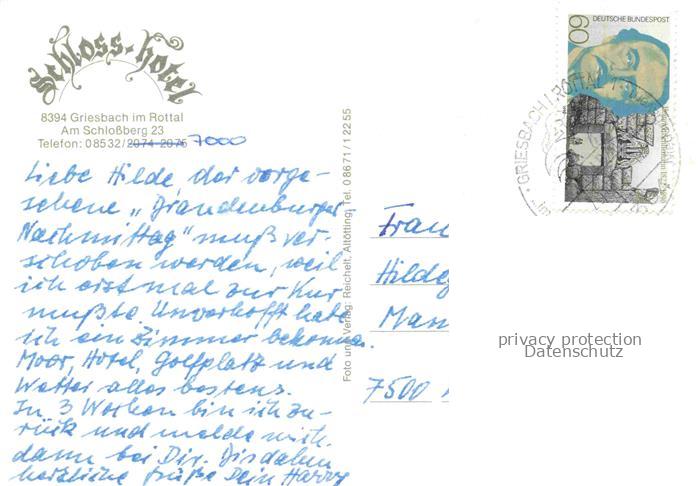 Schloss-Hotel
8394 Griesbach im Rottal
Am Schloßberg 23
Telefon: 08532/2074-2075 7000
Liebe Hilde, der vorge-
sehene „Brandenburger
Nachmittag" muß ver-
schoben werden, weil
ich erst mal zur Kur
mußte. Unverhofft habe
ich ein Zimmer bekommen.
Moor, Hotel, Golfplatz und
Wetter alles bestens.
In 3 Wochen bin ich zu-
rück und melde mich
dann bei Dir. Bis dahin
herzliche Grüße Dein Harry
Foto und Verlag: Reichelt, Altötting, Tel. 08671/12255
60
DEUTSCHE BUNDESPOST
GRIESBACH I. ROTTAL
Frau
Hilde
Man
7500
privacy protection
Datenschutz